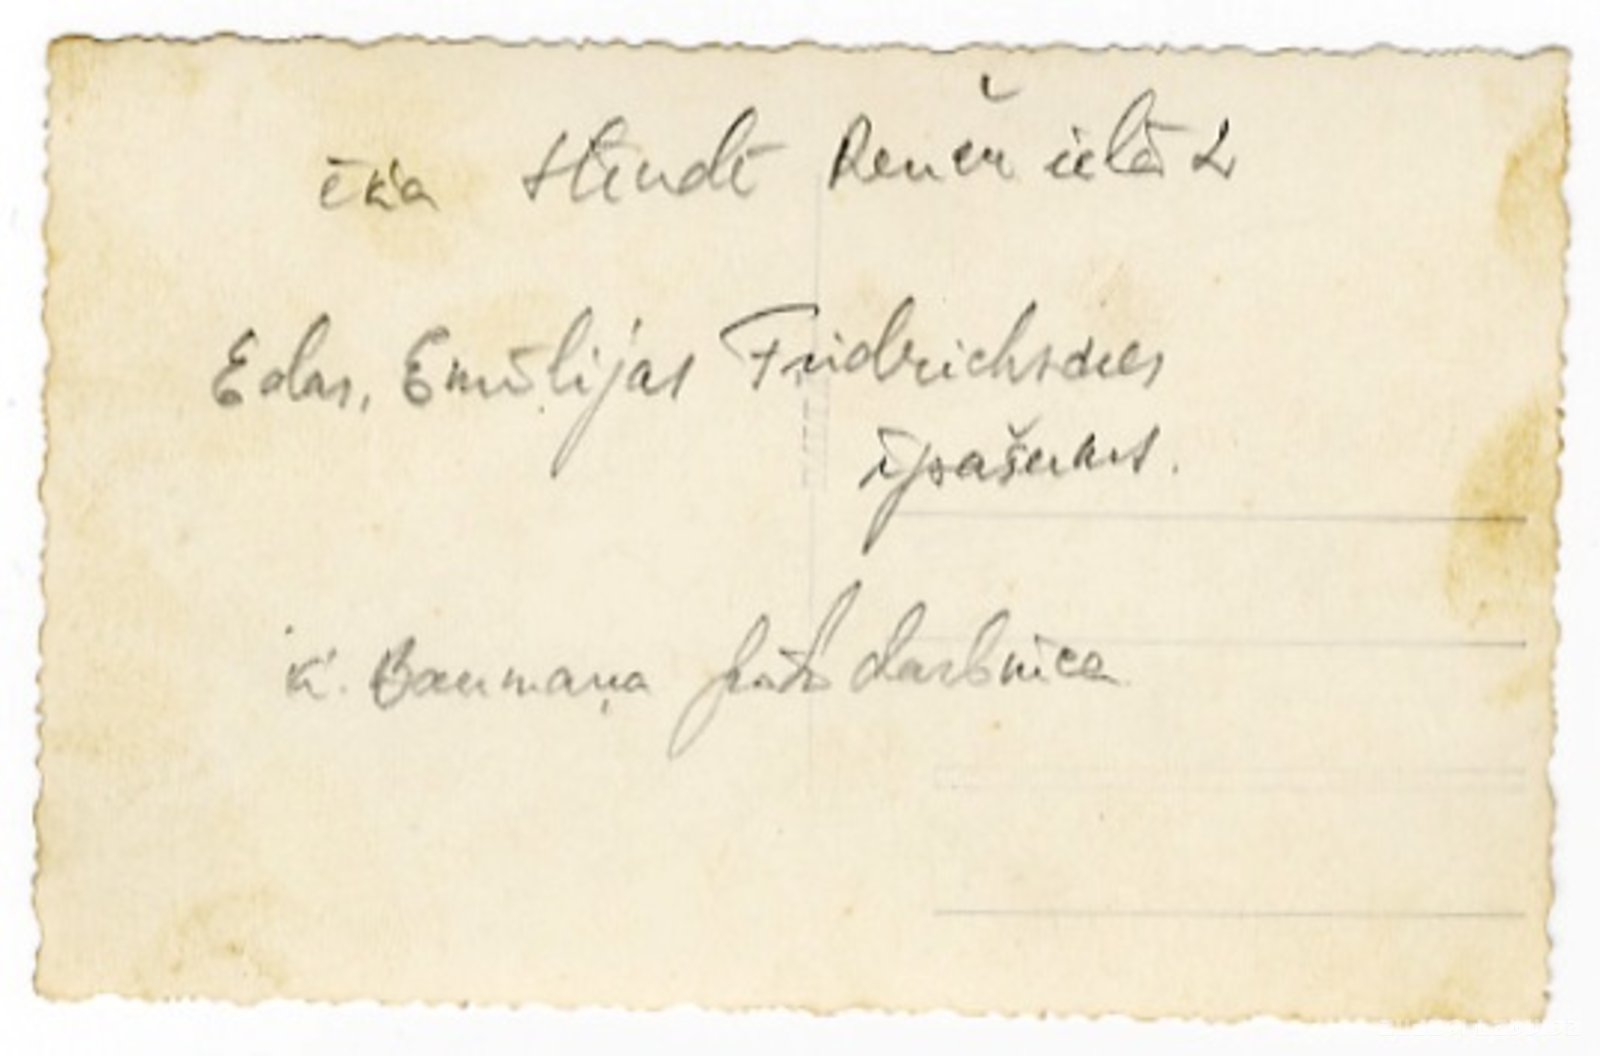 ēka Stendē Renču ielā 2
Edas, Emīlijas Fridrichsones
īpašums.
K. Baumaņa foto darbnīca